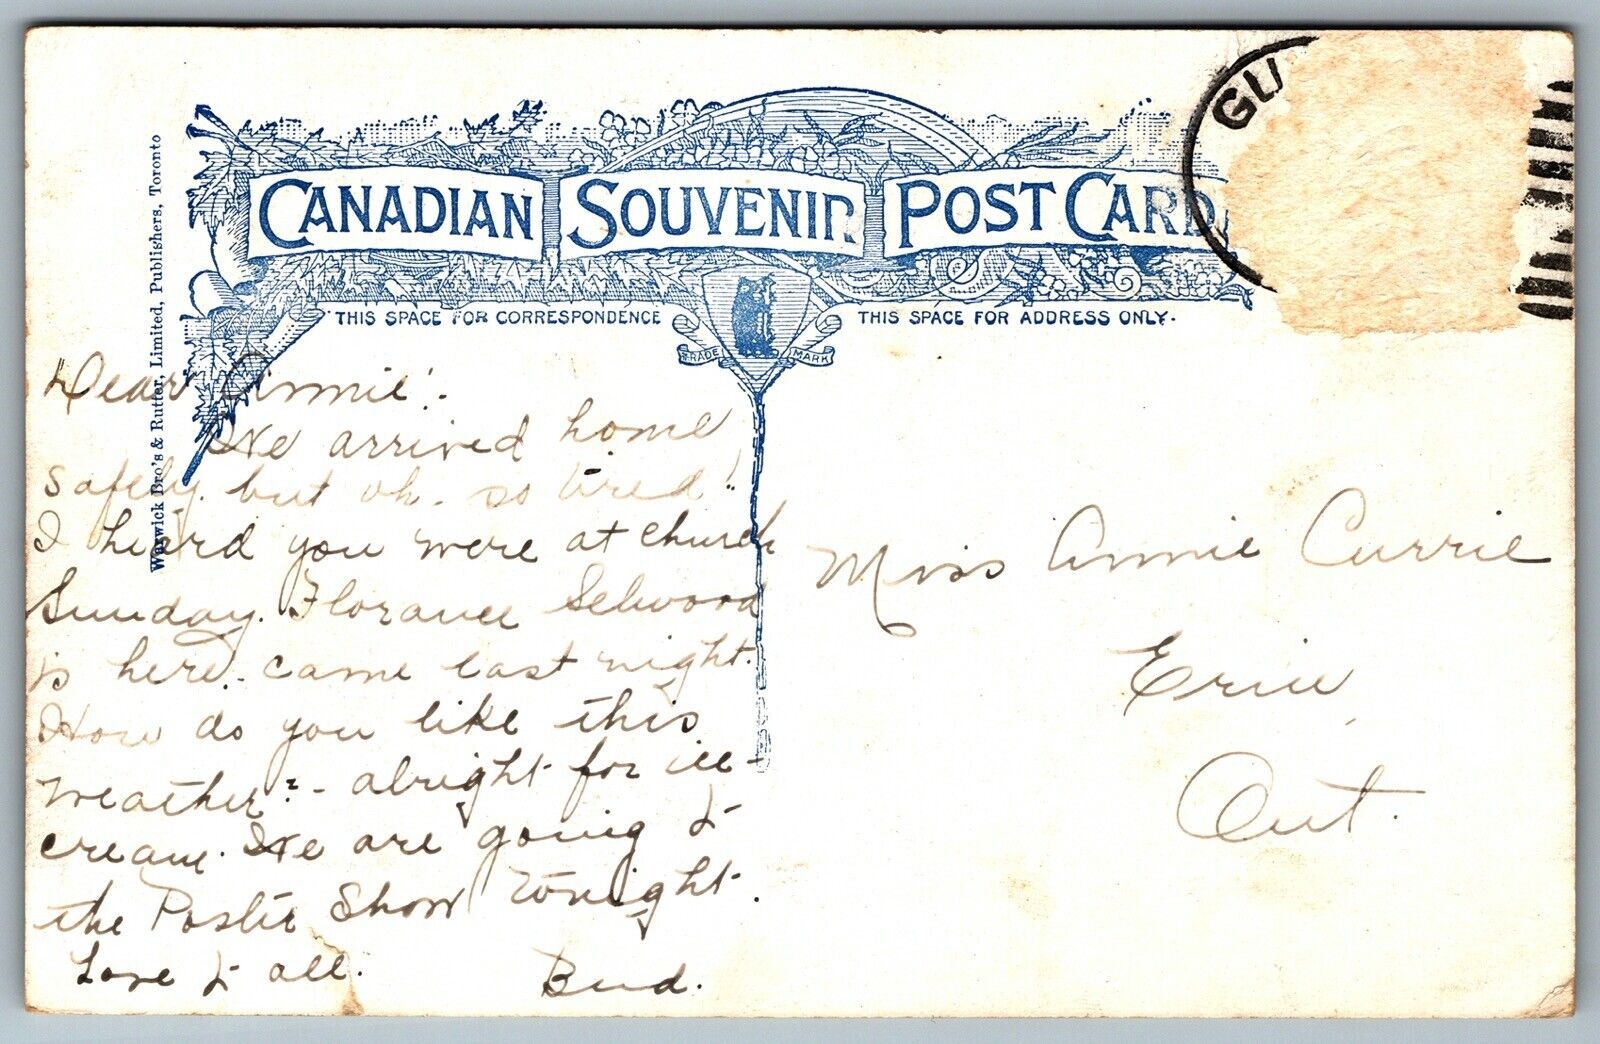 CANADIAN SOUVENIR POST CARD
THIS SPACE FOR CORRESPONDENCE
THIS SPACE FOR ADDRESS ONLY.
TRADE MARK
Warwick Bro's & Rutter, Limited, Publishers, Toronto
GU
Dear Annie!.
We arrived home
safely. but oh. so tired!
I heard you were at church
Sunday. Florance Selwood
is here. came last night.
How do you like this
weather? - alright for ice-
cream. We are going to
the Poster Show tonight.
Love to all. Bud.
Miss Annie Currie
Erin,
Ont.